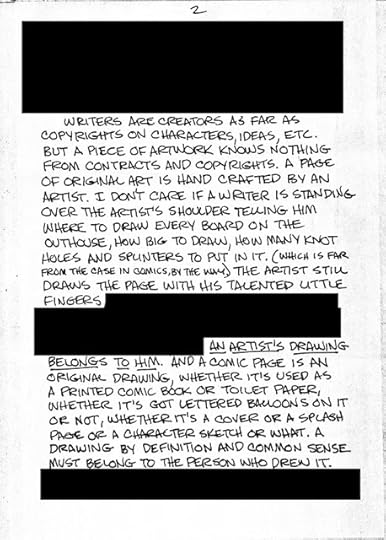 2
WRITERS ARE CREATORS AS FAR AS
COPYRIGHTS ON CHARACTERS, IDEAS, ETC.
BUT A PIECE OF ARTWORK KNOWS NOTHING
FROM CONTRACTS AND COPYRIGHTS. A PAGE
OF ORIGINAL ART IS HAND CRAFTED BY AN
ARTIST. I DON'T CARE IF A WRITER IS STANDING
OVER THE ARTIST'S SHOULDER TELLING HIM
WHERE TO DRAW EVERY BOARD ON THE
OUTHOUSE, HOW BIG TO DRAW, HOW MANY KNOT
HOLES AND SPLINTERS TO PUT IN IT. (WHICH IS FAR
FROM THE CASE IN COMICS, BY THE WAY) THE ARTIST STILL
DRAWS THE PAGE WITH HIS TALENTED LITTLE
FINGERS
AN ARTIST'S DRAWING
BELONGS TO HIM. AND A COMIC PAGE IS AN
ORIGINAL DRAWING, WHETHER IT'S USED AS
A PRINTED COMIC BOOK OR TOILET PAPER,
WHETHER IT'S GOT LETTERED BALLOONS ON IT
OR NOT, WHETHER IT'S A COVER OR A SPLASH
PAGE OR A CHARACTER SKETCH OR WHAT. A
DRAWING BY DEFINITION AND COMMON SENSE
MUST BELONG TO THE PERSON WHO DREW IT.